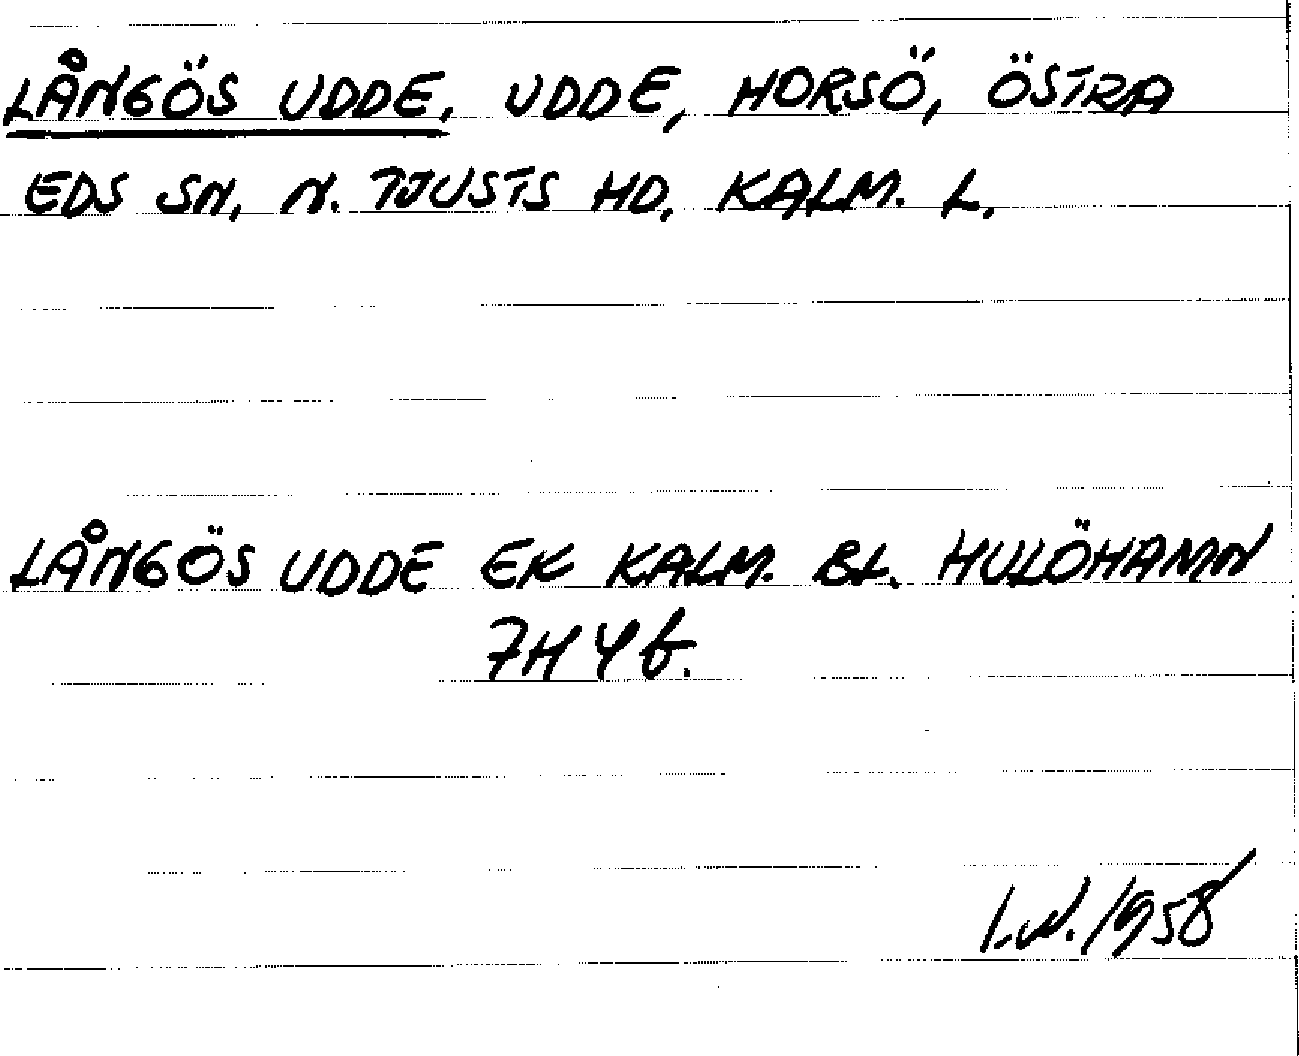 LÅNGÖS UDDE, UDDE, HORSÖ, ÖSTRA
EDS SN, N. TJUSTS HD, KALM. L.
LÅNGÖS UDDE EK KALM. BL. HULÖHAMN
7H 4 b.
I.N. 1958